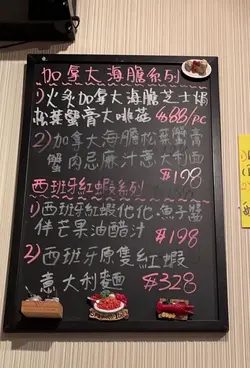 加拿大海膽系列
1)火炙加拿大海膽芝士焗
松葉蟹膏大啡菇 $88/pc
2)加拿大海膽松葉蟹膏
蟹肉忌廉汁意大利麵
$198
西班牙紅蝦系列
1)西班牙紅蝦他他、魚子醬
伴芒果油醋汁 $198
2)西班牙原隻紅蝦
意大利麵 $328